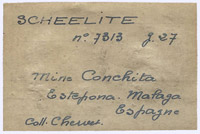 SCHEELITE
nº 7313 J 27
Mine Conchita
Estepona. Malaga
Espagne
Coll.